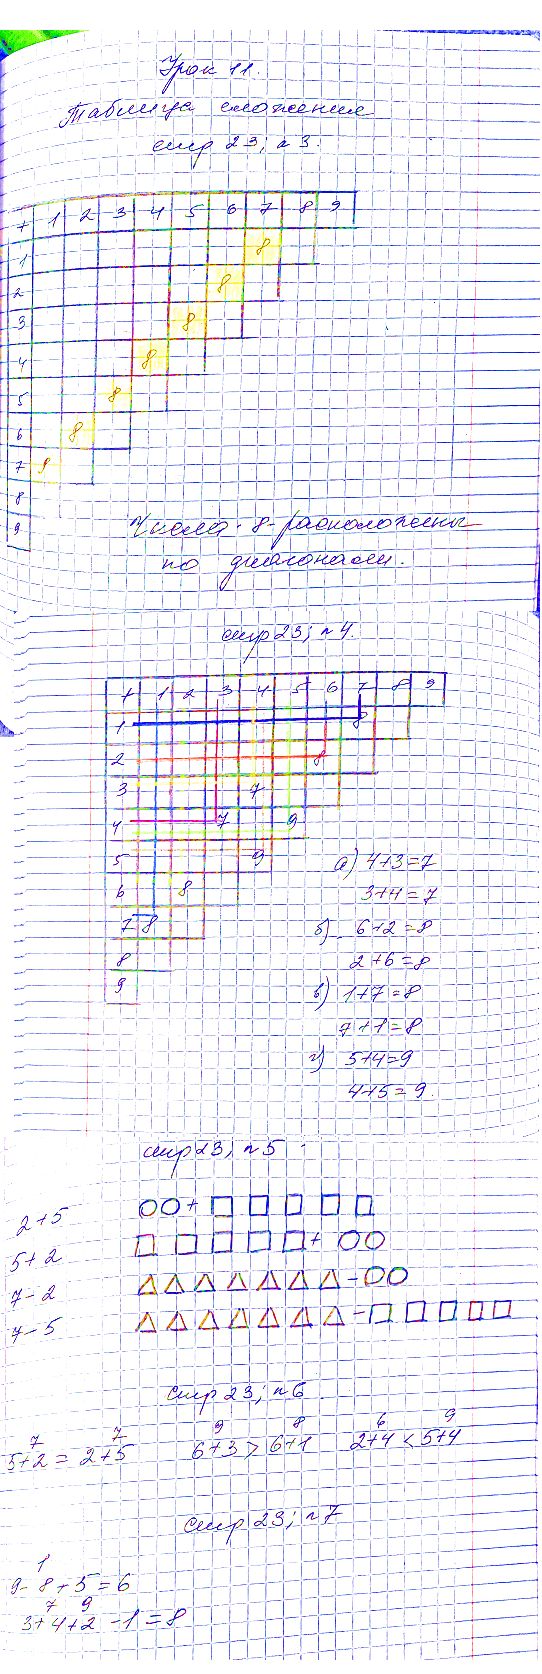 Урок 11.
Таблица сложения
стр 23; №3.
+ 1 2 3 4 5 6 7 8 9
1 8
2 8
3 8
4 8
5 8
6 8
7 8
8
9
Числа 8 расположены
по диагонали.
стр 23; №4.
+ 1 2 3 4 5 6 7 8 9
1 8
2 8
3 7
4 7 9
5 9
6 8
7 8
8
9
а) 4+3=7
3+4=7
б) 6+2=8
2+6=8
в) 1+7=8
7+1=8
г) 5+4=9
4+5=9.
стр 23; №5
2+5 +
5+2 +
7-2 -
7-5 -
стр 23; №6
7 7 9 8 6 9
5+2 = 2+5 6+3 > 6+1 2+4 < 5+4
стр 23; №7
1
9-8+5=6
7 9
3+4+2-1=8